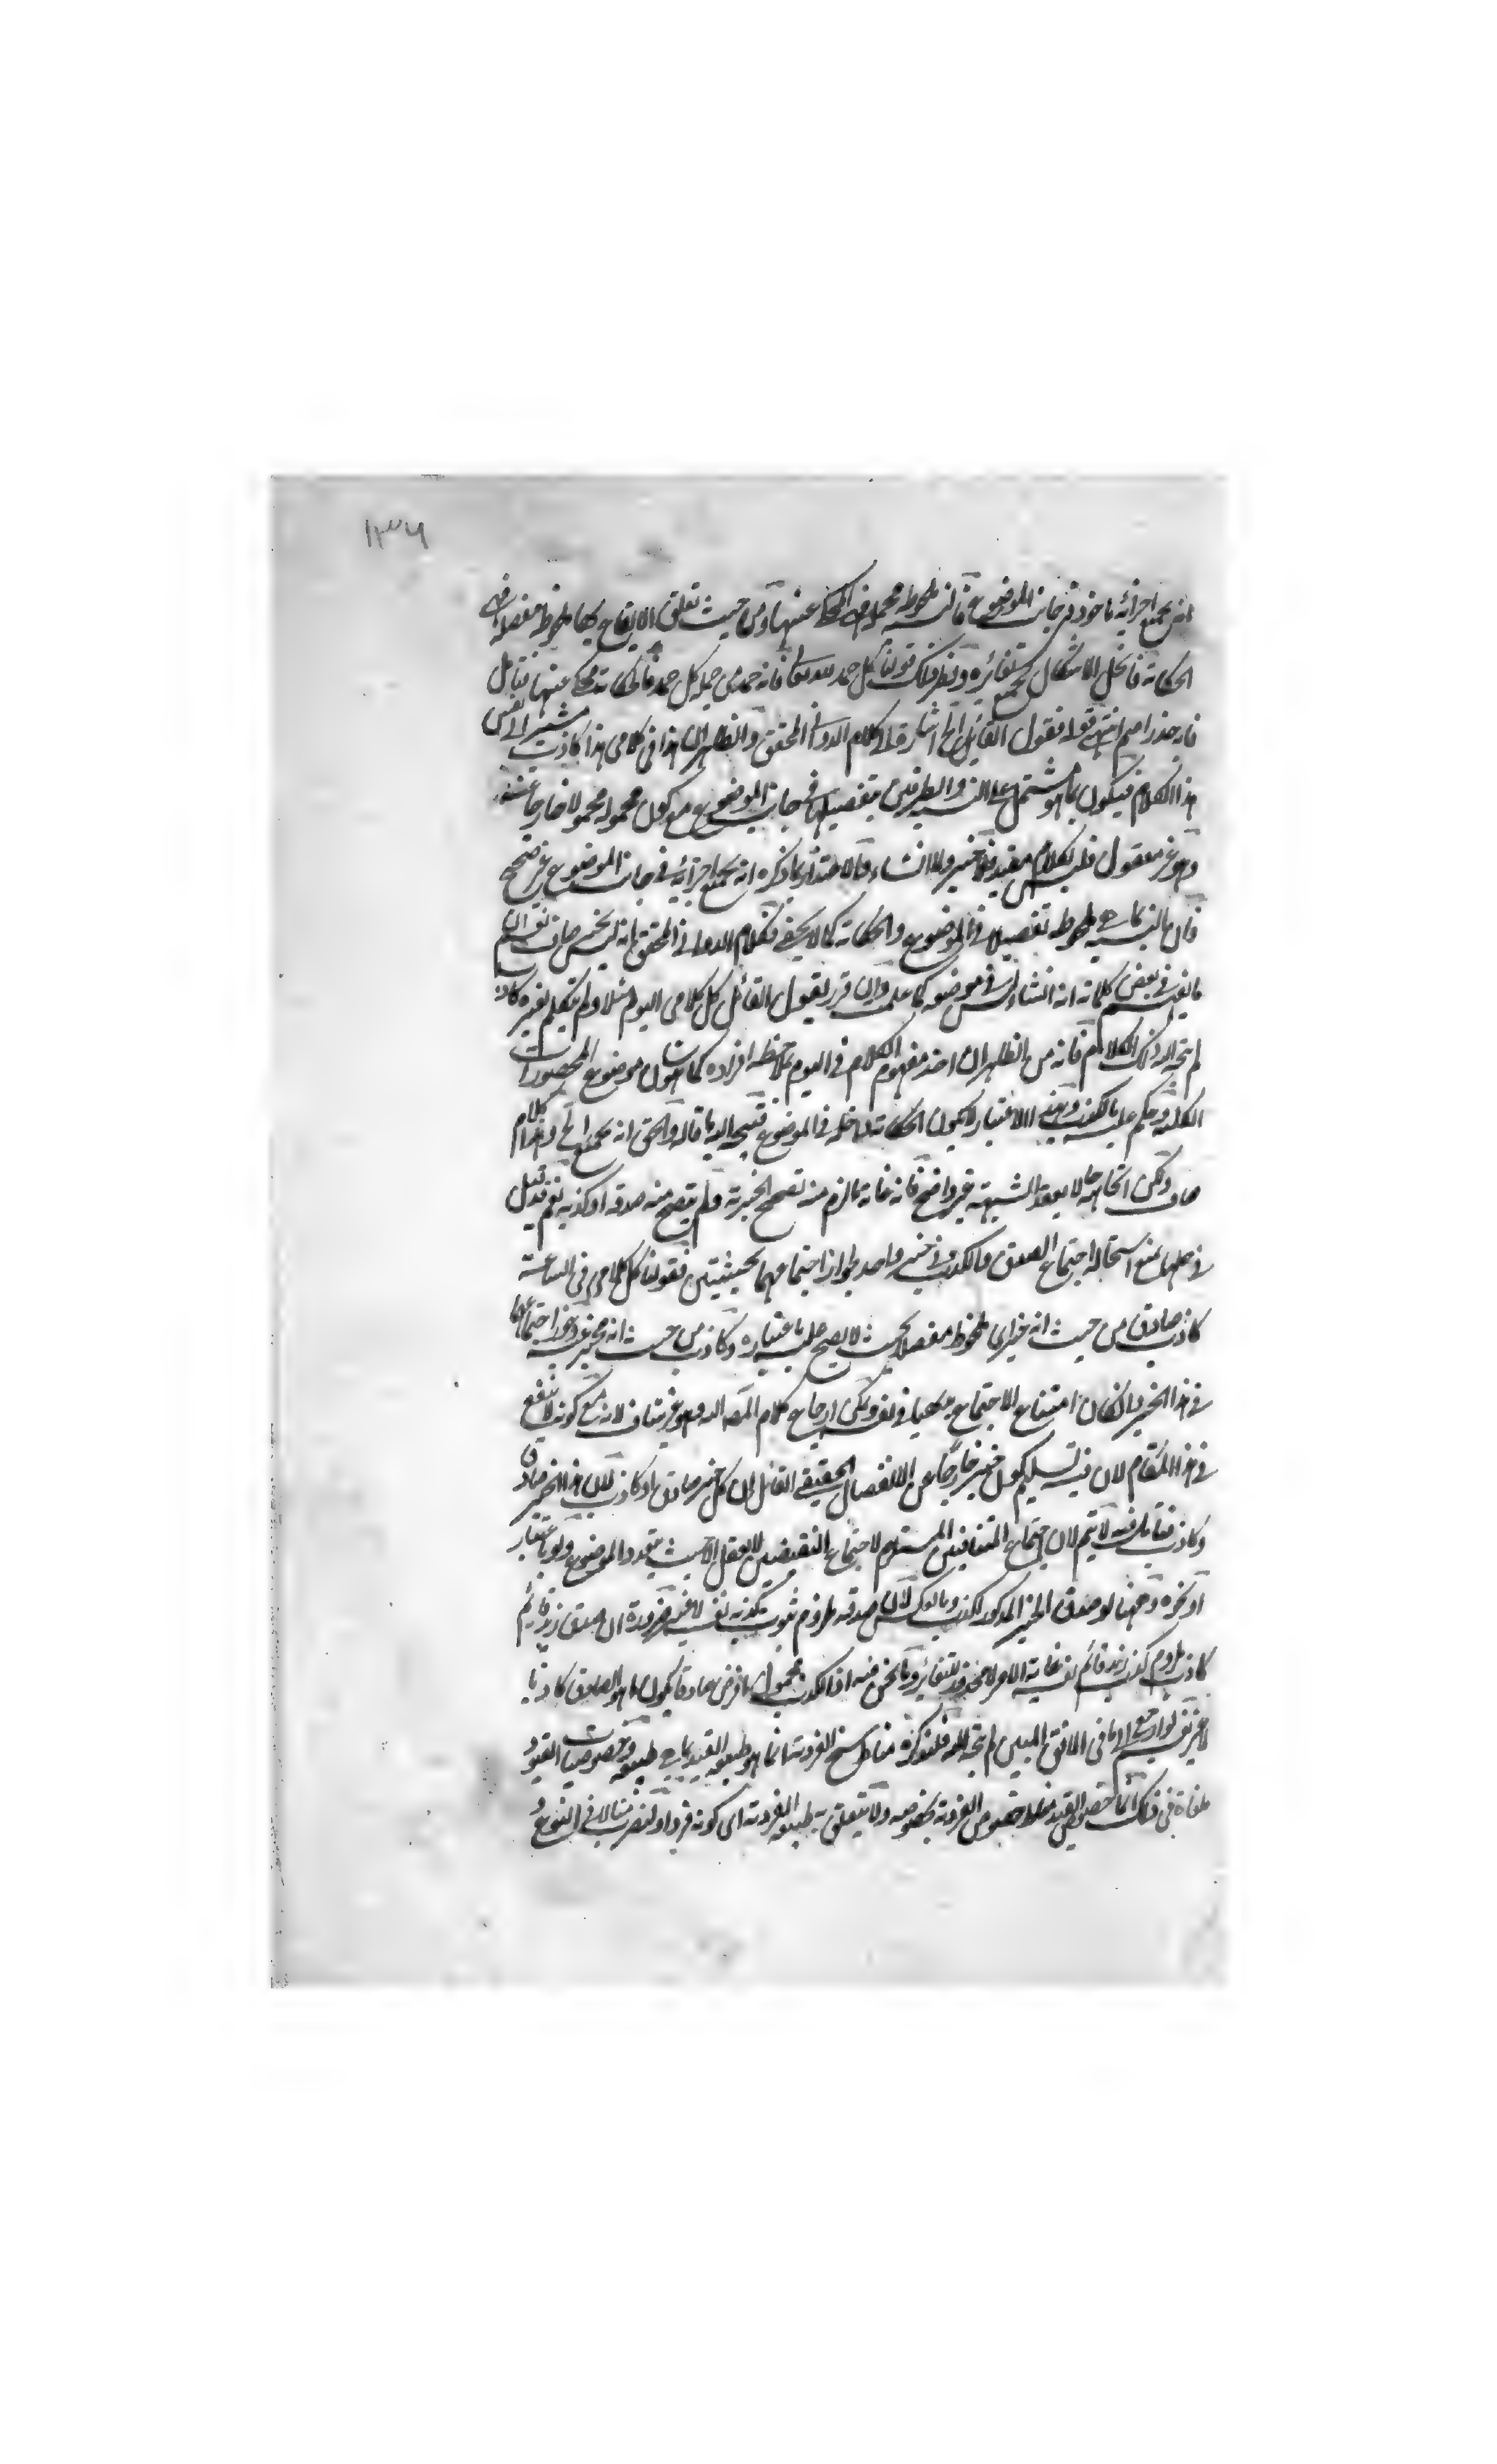 ١٣٦
انه بجميع اجزائه ماخوذ فى جانب الموضوع فالنسبة ملحوظة مجملا فهو المحكى عنها ومن حيث تعلق الايقاع بها ملحوظة مفصلا فهى
الحكاية فانحل الاشكال بجميع تقاريره ونظير ذلك قولنا كل حمد لله تعالى فانه حمد من جملة كل حمد فالحكاية محكى عنها فتامل
فانه جذر اصم انتهى قوله فقول القائل الخ اشارة الى كلام الدوانى المحقق والظاهر ان هذا فى كلامى هذا كاذب مشير الى نفس
هذا الكلام فيكون بما هو مشتمل على النسبة والطرفين بتفصيلها فى جانب الموضوع مع كون محموله محمولا خارجا عنه
وهو غير معقول فليس الكلام مفيد فلا خبر ولا انشاء فالاعتذار بما ذكره انه بجميع اجزائه فى جانب الموضوع غير صحيح
فان النسبة كما هى ملحوظة تفصيلا فى الموضوع والحكاية كما لا يخفى فكلام الدوانى المحقق بانه ليس بخبر صاف نعم ان
ما يفهم فى بعض كلماته انه انشاء ليس فى موضعه كما علمت وان قرر بقول القائل كل كلامى اليوم مثلا ولم يتكلم بغيره كاذب
لم يتجه اليه ذلك الكلام فانه من الظاهر ان اخذ مفهوم الكلام فى اليوم بملاحظة افراده كما هو شان موضوع المحصورات
الكلية وحكم عليه بالكذب وبهذا الاعتبار لا يكون الحكاية داخلة فى الموضوع فيتجه اليه ما قاله والحق انه بجميع الخ وهذا كلام
صاف ولكن اتجاهه حالا بعقد الشبهة غير واضح فانه غاية ما لزم منه تصحيح الخبرية ولم يتضح منه صدقه او كذبه نعم قد قيل
فى حلها بمنع استحالة اجتماع الصدق والكذب فى خبر واحد لجواز اجتماعهما بحيثيتين فقولنا كل كلامى فى الساعة
كاذب صادق من حيث انه خبر اى ملحوظ مفصلا بحيث لا يصح سلبه باعتباره وكاذب من حيث انه مخبر عنه ويجوز اجتماعهما
فى هذا الخبر وان كان امتناع الاجتماع بديهيا فى نفسه ويمكن ارجاع كلام المصنف اليه وهو غير شاف لانه مع كونه لا ينفع
فى هذا المقام لان فيه تسليم كون خبر خارجا عن الانفصال الحقيقى القائل ان كل خبر صادق او كاذب لان هذا الخبر صادق
وكاذب فتامل فيه لا يتم لان اجتماع المتنافيين المستلزم لاجتماع النقيضين لا يعقل الا بحيث يتعدد الموضوع ولو باعتبار
او نحوه وههنا لو صدق الخبر المذكور لكذب وبالعكس لان صدقه ملزوم ثبوت كذبه نفسه لا غيره ضرورة ان صدق زيد قائم
كاذب ملزوم كذب زيد قائم نعم غاية الامر لا محذور للتغاير وما نحن فيه اذا الكذب محمول ما فرض صادقا يكون ما هو الصادق كاذبا
لا غير نعم لو ارجع الى ما فى الافق المبين لم يتجه اليه فلنذكره مناط سنخ الفردية انما هو طبيعة القيد بما هى طبيعة وخصوصيات القيود
ملغاة فى ذلك انما خصوص القيد مناط خصوص الفردية بخصوصه ولا يتعلق به طبيعة الفردية اى كونه فردا ولنضرب مثالا فى النوع و